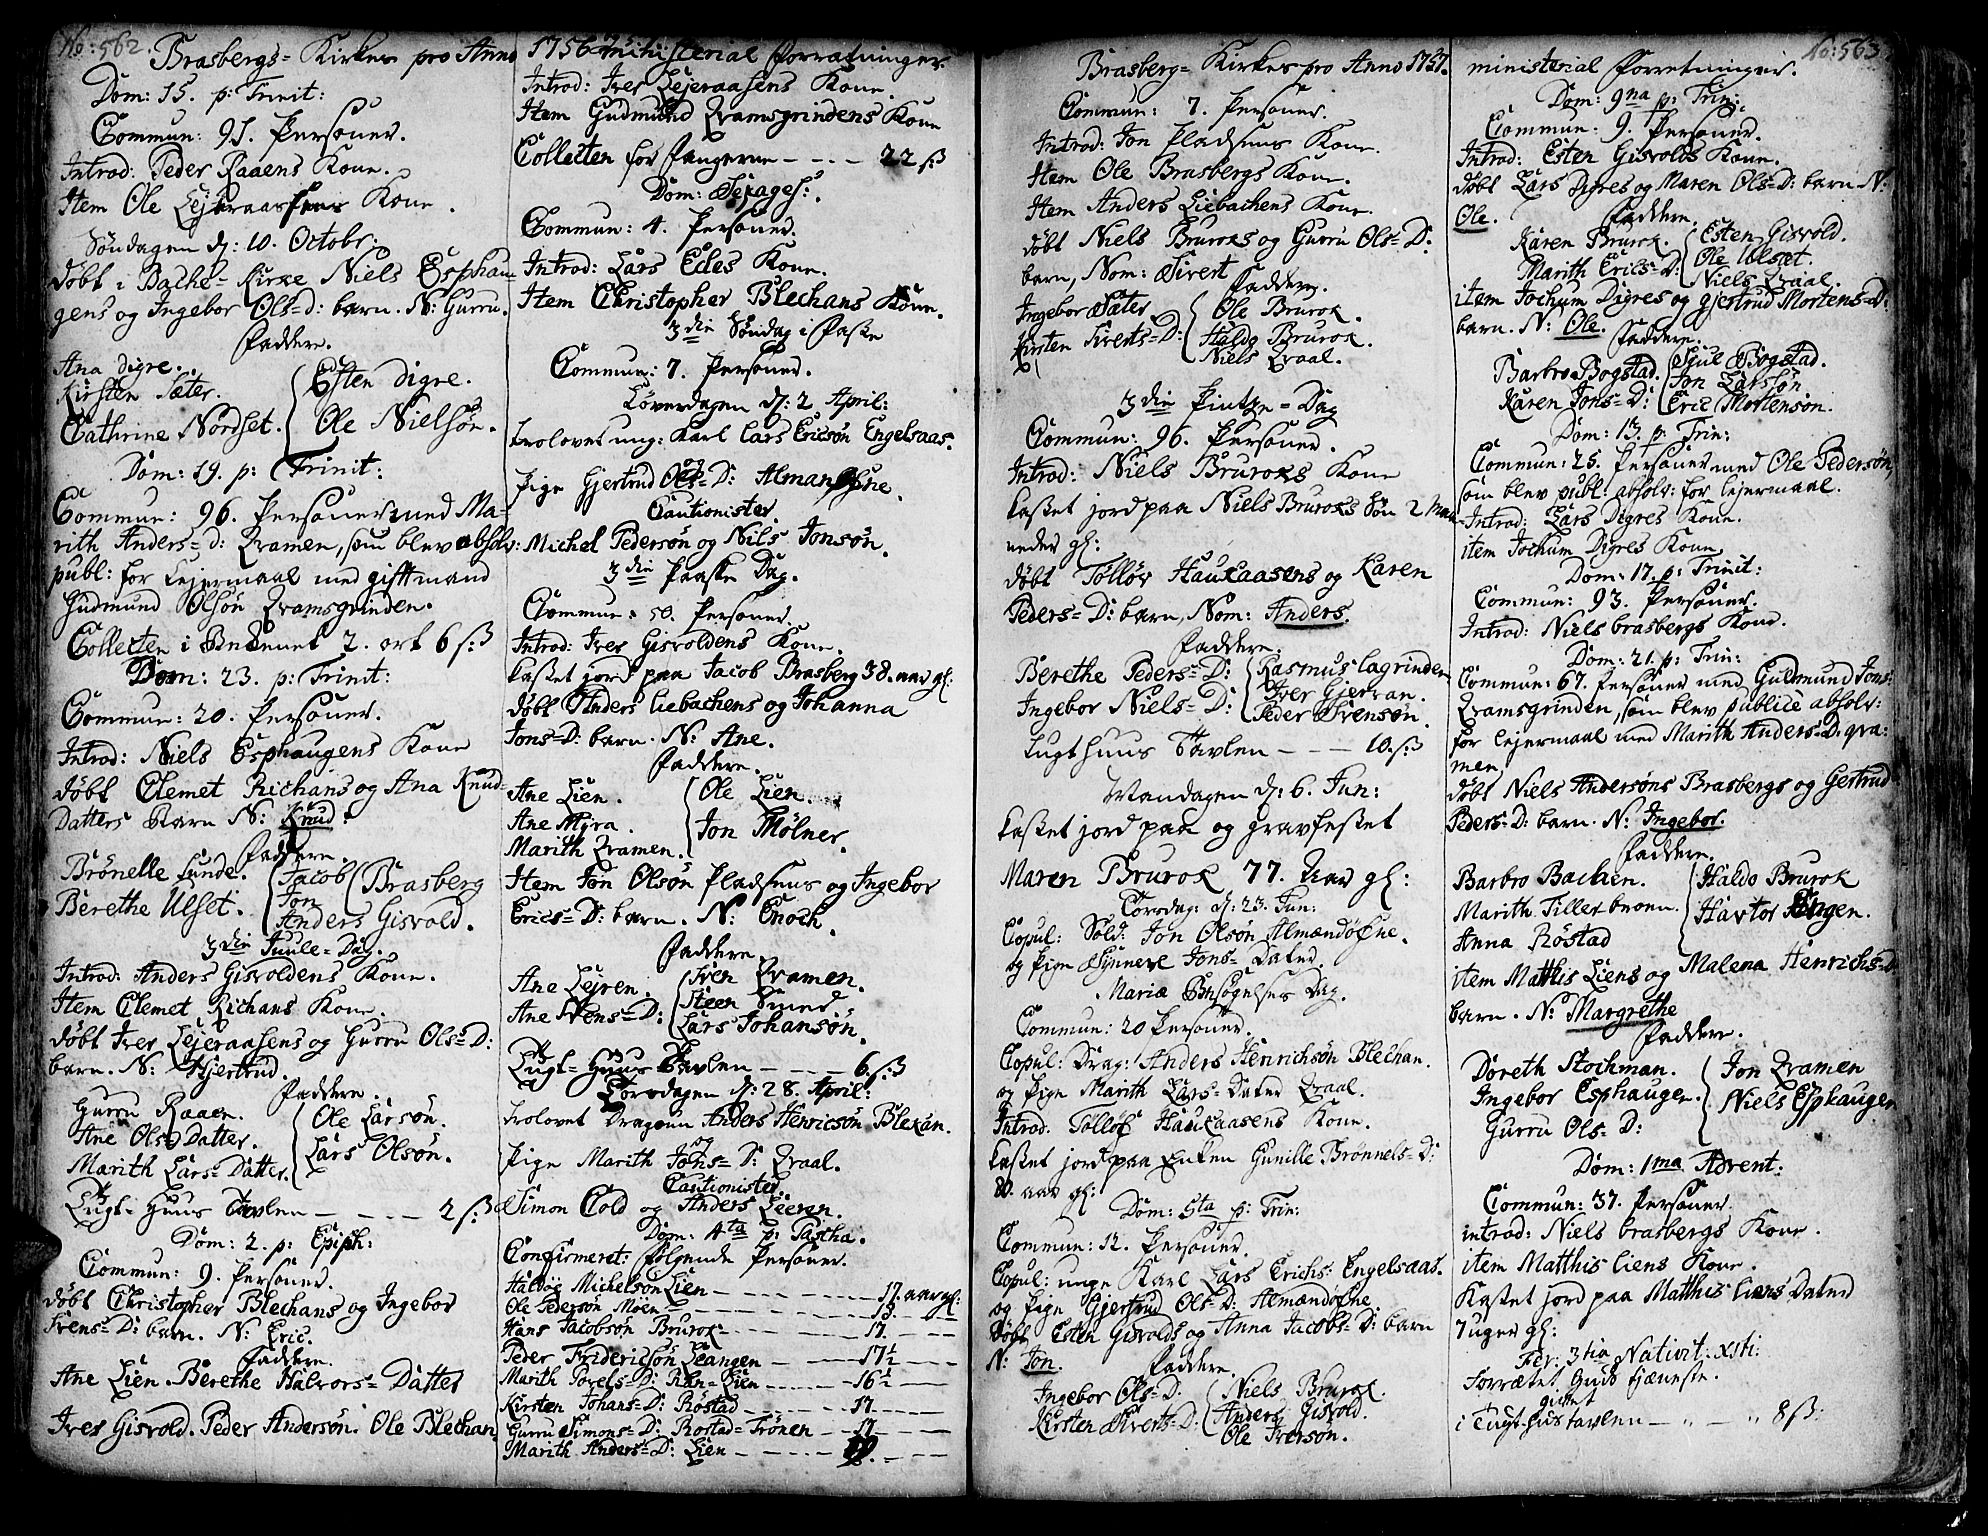 No: 562.
Brasbergs= Kirkes pro Anno 1756 ministerial forretninger.
Dom: 15. p: Trinit:
Commun: 91. Personer.
Introd: Peder Raaens Kone.
Item Ole Lejeraasens Kone.
Søndagen d: 10. Octobr:
døbt i Bache= Kirke Niels Esphau-
gens og Ingebor Ols=D: barn. N: Gurru.
Faddere.
Ana digre.
Kirsten Sæter.
Cathrine Nordset.
Esten digre.
Ole Nielsøn.
Dom: 19. p: Trinit:
Commun: 96. Personer med Ma=
rith Anders=D: Qramen, som blev absolv:
publ: for Lejermaal med gifft mand
Gudmund Olsøn Qramsgrinden.
Collecten i 2. ort 6 sß
Dom: 23. p: Trinit:
Commun: 20. Personer.
Introd: Niels Esphaugens Kone
døbt Clemet Richans og Ana Knud-
Datters Barn N: Knud.
Faddere.
Brønelle Lunde.
Berethe Ulset.
Jacob
Jon
Brasberg
Anders Gisvold.
3die Juule=Dag.
Introd: Anders Gisvoldens Kone.
Item Clemet Richans Kone.
døbt Iver Lejeraasens og Gurru Ols=D:
barn. N: Hjertrud.
Faddere.
Gurru Raaen.
Ane Ols Datter.
Marith Lars=Datter.
Ole Larsøn.
Lars Olsøn.
Tugt=Huus Tavlen - - - - 2 sß
Dom: 2. p: Epiph:
Commun: 9. Personer.
døbt Christopher Blechans og Ingebor
Svens=D: barn. N: Eric.
Faddere.
Ane Lien. Berethe Halvors=Datter
Iver Gisvold. Peder Andersøn. Ole Blechan
Introd: Iver Lejeraasens Kone.
Item Gudmund Qramsgrindens Kone
Collecten for Fangerne - - - - 22 sß
Dom: Sexages:
Commun: 4. Personer.
Introd: Lars Edes Kone.
Item Christopher Blechans Kone.
3die Søndag i Faste
Commun: 7. Personer.
Løverdagen d: 2 April:
trolovet ung: Karl Lars Ericsøn Engelsaas.
og
Pige Gjertrud Ols=D: Almansøfne.
Cautionister
Michel Pedersøn og Nils Jonsøn.
3die Paaske Dag.
Commun: 50. Personer.
Introd: Iver Gisvoldens Kone.
kastet jord paa Jacob Brasberg 38. aar gl:
døbt Anders Liebachens og Johanna
Jons=D: barn. N: Ane.
Faddere.
Ane Lien.
Ane Myra.
Marith Qramen.
Ole Lien.
Jon Mølner.
Item Jon Olsøn Pladsens og Ingebor
Erics=D: barn. N: Enoch.
Faddere.
Ane Lejren.
Ane Svens=D:
Sven Qramen.
Steen Smed
Lars Johansøn.
Tugt=Huus Tavlen - - - - 6. sß
Torsdagen d: 28. April:
trolovet Dragoun Anders Henricsøn Blekan.
og
Pige Marith Jons=D: Qraal.
Cautionister
Simon Cold og Anders Leeren.
Dom: 4ta p: Pascha.
Confirmeret: følgende Personer.
Haldoe Michelsøn Lien - - - 17. aar gl:
Ole Pedersøn Moen - - - 19. - -
Hans Jacobsøn Brurok - - - 17. - -
Peder Fridericsøn Leangen - - - 17½ - -
Marith Povels=D: Rÿn=Lien - - - 16½ - -
Kirsten Johans=D: Røstad - - - 17. - -
Gurru Simons=D: Rostad=Trønen - - 17 - -
Marith Anders=D: Lien - - - 19. - -
No: 563
Brasberg= Kirkes pro Anno 1757. ministerial forretninger.
Commun: 7. Personer.
Introd: Jon Pladsens Kone.
Item Ole Brasbergs Kone.
Item Anders Liebachens Kone.
døbt Niels Bruroks og Gurru Ols=D:
barn, Nom: Sivert
Faddere.
Ingebor Sæter.
Kirsten Siverts=D:
Ole Brurok.
Haldo Brurok.
Niels Qraal.
3die Pintze=Dag
Commun: 96. Personer.
Introd: Niels Bruroks Kone
kastet jord paa Niels Bruroks Søn 2. maa-
neder gl:
døbt Tølløv Haukaasens og Karen
Peders=D: barn, Nom: Anders.
Faddere.
Berethe Peders=D:
Ingebor Niels=D:
Rasmus Lagrinden
Iver Gjervan.
Peder Svensøn.
Tugthuus Tavlen - - - 10. sß
Mandagen d: 6. Jun:
kastet jord paa og gravfestet
Maren Brurok 77. Aar gl:
Torsdag: d: 23. Jun:
Copul: Sold: Jon Olsøn Almændøfne.
og Pige Synnere Jons=Dater.
Mariæ Besøgelses Dag.
Commun: 20 Personer.
Copul: Drag: Anders Henrichsøn Blechan.
og Pige Marith Lars=Dater Qraal.
Introd. Tølløf Haukaasens Kone.
kastet jord paa Enken Gunille Brønnels=D:
80. aar gl:
Dom: 5ta p: Trin:
Commun: 12. Personer.
Copul: unge Karl Lars Erichs: Engelsaas.
og Pige Gjertrud Ols=D: Almændøfne
døbt Esten Gisvolds og Anna Jacobs=D: barn
N: Jon.
Faddere.
Ingebor Ols=D.
Kirsten Siverts=D:
Niels Brurok.
Anders Gisvold.
Ole Iversøn.
Dom: 9na p: Trin:
Commun: 9. Personer.
Introd: Esten Gisvolds Kone.
døbt Lars Digres og Maren Ols=D: barn N:
Ole.
Faddere.
Karen Brurok.
Marith Erics=D:
Esten Gisvold.
Ole Ulset.
Niels Qraal.
item Jochum Digres og gjertrud Mortens=D:
barn. N: Ole.
Faddere.
Barbro Bogstad.
Karen Jons=D:
Sjul Bogstad.
Jon Larsøn
Eric Mortensøn.
Dom: 13. p: Trin:
Commun: 25. Personer med Ole Pedersøn,
som blev publ: absolv: for lejermaal.
Introd: Lars Digres Kone.
item Jochum Digres Kone
Dom: 17. p: Trinit:
Commun: 93. Personer.
Introd: Niels brasbergs Kone.
Dom: 21. p: Trin:
Commun: 67. Personer med Gudmund Jons:
Qramsgrinden, som blev publice absolv:
for lejermaal med Marith Anders=D: qra:
men
døbt Niels Andersøns Brasbergs og Gertrud
Peders=D: barn. N: Ingebor.
Faddere.
Barbro Bachen.
Marith Tillerbroen.
Anna Røstad
Haldo Brurok
Havtor Engen.
item Matthis Liens og Malena Henrichs=D:
barn. N: Margrethe
Faddere.
Doreth Stochman.
Ingebor Esphaugen.
Gurru Ols=D:
Jon Qramen
Niels Esphaugen
Dom: 1ma Advent:
Commun: 37. Personer
introd: Niels brasbergs Kone.
item Matthis Liens Kone.
Kastet jord paa Matthis liens Dater
7 uger gl:
Fer: 3tia Nativit: xsti:
forrættet Guds tjæneste.
givet
i Tugthustavlen - - - 8 sß.